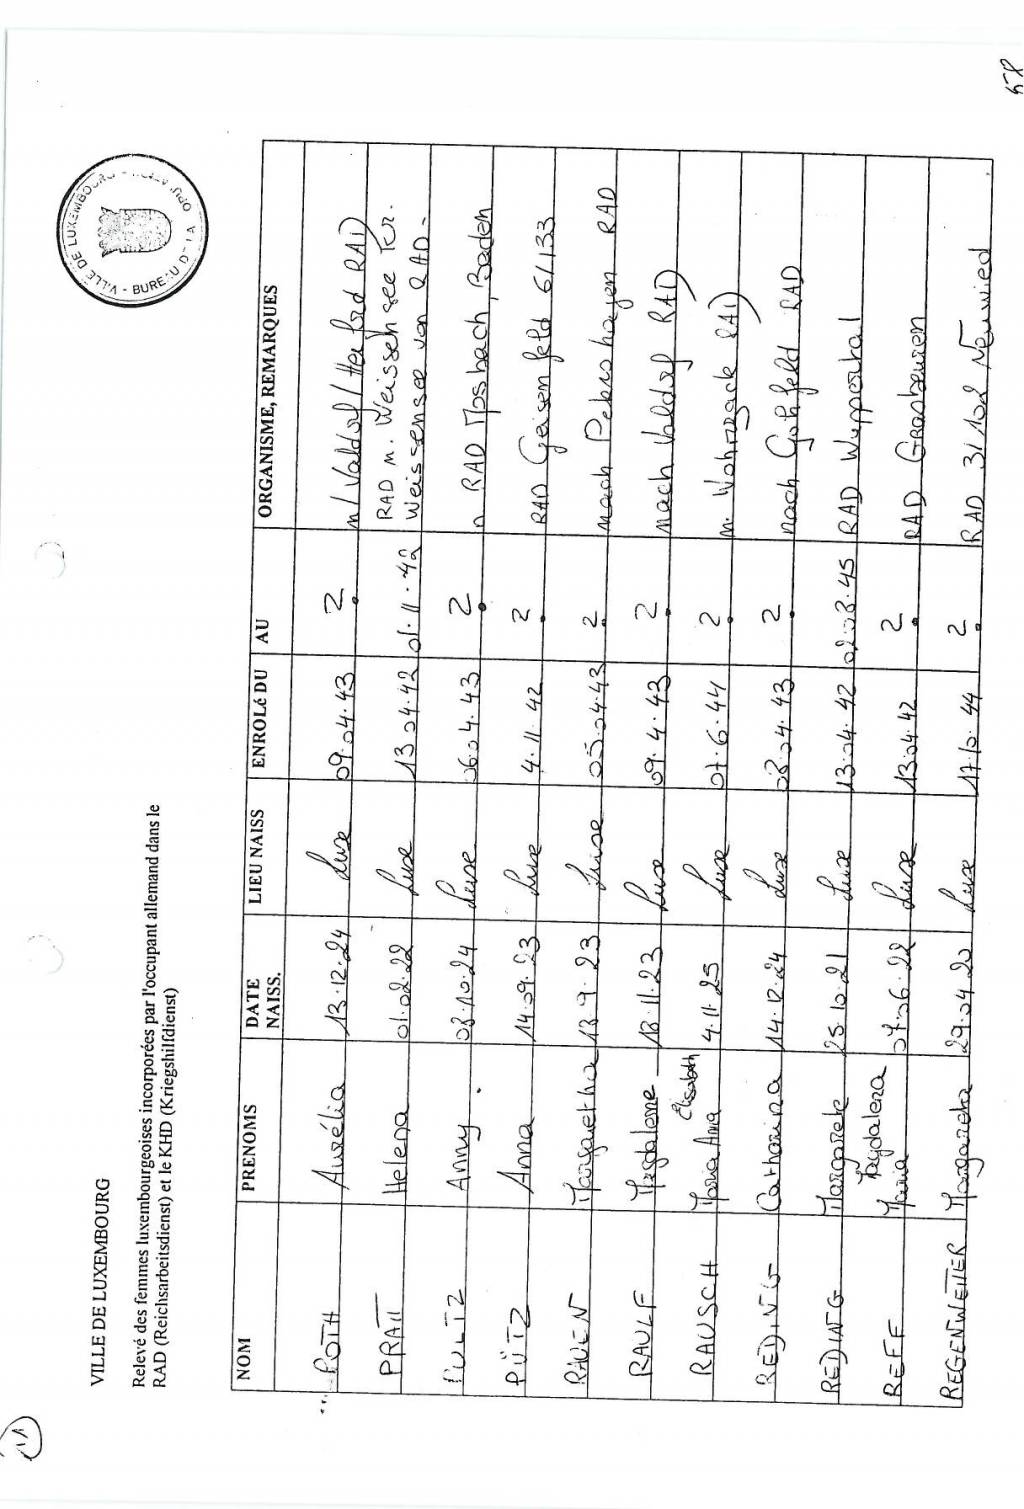 VILLE DE LUXEMBOURG
Relevé des femmes luxembourgeoises incorporées par l'occupant allemand dans le
RAD (Reichsarbeitsdienst) et le KHD (Kriegshilfdienst)
VILLE DE LUXEMBOURG - BUREAU DE LA
NOM PRENOMS DATE NAISS. LIEU NAISS ENROLé DU AU ORGANISME, REMARQUES
POTH Aurélia 13.12.24 Luxe 09.04.43 ? n/Valdorf/Herford RAD
PRATT Helena 01.02.22 Luxe 13.04.42 01.11.42 RAD n. Weissensee
Weissensee von RAD-
PULTZ Anny. 08.10.24 Luxe 06.04.43 ? n RAD Mosbach, Baden
PÜTZ Anna 14.09.23 Luxe 4.11.42 ? RAD Geisenfeld 6/133
RAUEN Margaretha 18.9.23 Luxe 05.04.43 ? nach Petershagen RAD
RAULF Magdalene 18.11.23 Luxe 09.4.43 ? nach Valdorf RAD
RAUSCH Maria Anna Elisabeth 4.11.25 Luxe 07.6.44 ? n. RAD
REDING Catharina 14.12.24 Luxe 08.04.43 ? nach RAD
REDING Margarete 25.10.21 Luxe 13.04.42 02.03.45 RAD Wuppertal
REFF Maria Magdalena 07.06.22 Luxe 13.04.42 ? RAD
REGENWETTER Margareta 29.04.20 Luxe 17.10.44 ? RAD 3/102 Neuwied
11